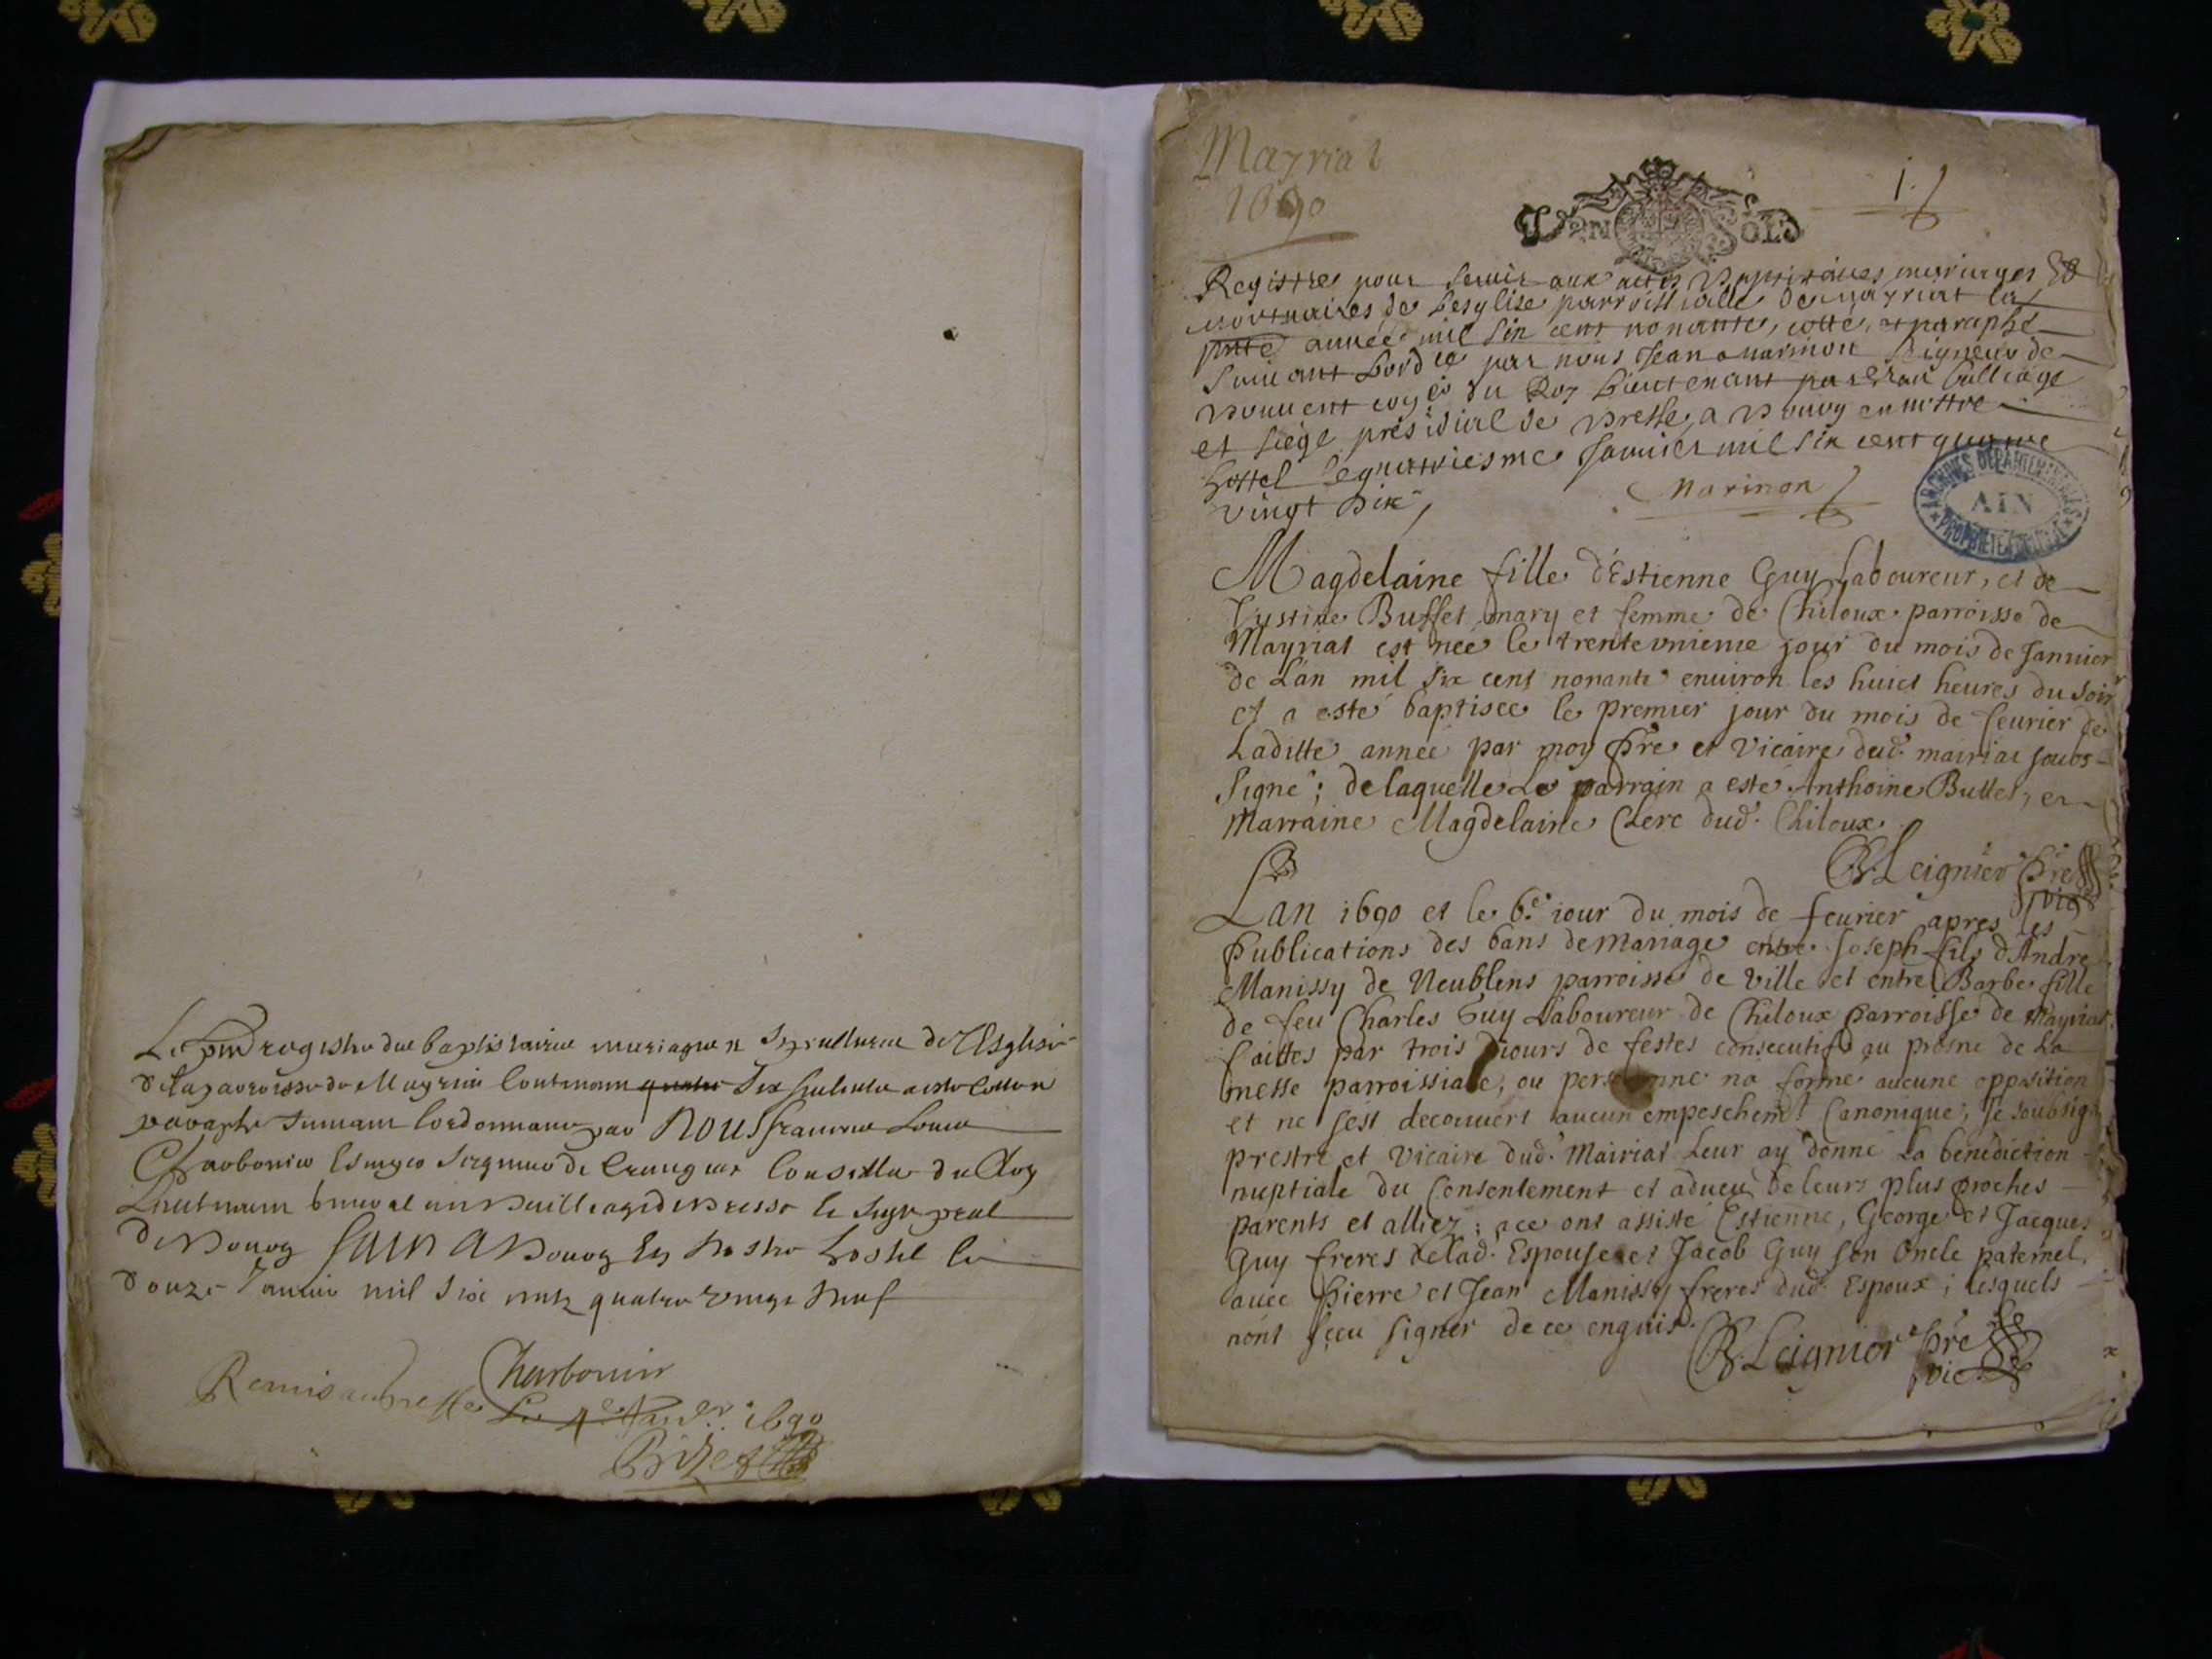 Le pnt registre des baptistaires mariages et sepultures de l'Esglise
de la parroisse de Mayria contenant quatre six feuliets a este cotte et
paraphe suivant l'ordonnance par nous francois Louis
Charbonier Escuyer Seigneur de Crangeac Conseiller du Roy
Lieutenant general au Bailliage de Bresse et siege pral
de Bourg fait a Bourg En nostre hostel le
douze Janvier mil six cents quatre vingt neuf
Charbonier
Remis au greffe Le 4e 1690
Mayriat
1690
VEN SOLS
1.
Registre pour servir aux actes Baptistaires mariages &
mortuaires de Lesglise parroissialle de mayriat la
pnte année mil six cent nonante, cotté, et paraphé
suivant Lordce par nous Jean marinon Seigneur de
du Roy Lieutenant par au balliage
et siege presidial de Bresse, a Bourg en nostre
hostel le quatriesme Janvier mil six cent quatre
vingt dix
Marinon
ARCHIVES DEPARTEMENTALES AIN PROPRIETE PUBLIQUE
Magdelaine fille d'Estienne Guy Laboureur, et de
Justine Buffet mary et femme de Chiloux parroisse de
Mayriat est née le trente unieme jour du mois de Janvier
de L'an mil six cent nonante environ les huict heures du soir
et a esté baptisee le premier jour du mois de feurier de
Laditte année par moy Pre et Vicaire dud. mairiat soubs
signé; de laquelle Le parrain a esté Anthoine Buffet, et
Marraine Magdelaine Clerc dud. Chiloux.
B. Leignier Pre
vic
Lan 1690 et le 6.e iour du mois de feurier apres les
Publications des bans de mariage entre Joseph fils d'André
Manissy de Neublens parroisse de Ville et entre Barbe fille
de feu Charles Guy Laboureur de Chiloux Parroisse de Mayriat
faittes par trois jours de festes consecutifs au prosne de La
messe parroissiale, ou personne na formé aucune opposition
et ne sest decouvert aucun empeschemt Canonique, Je soubsigné
prestre et Vicaire dud. Mairiat Leur ay donné La benediction
nuptiale du Consentement et adueu de leurs plus proches
parents et alliez; a ce ont assisté Estienne, George et Jacques
Guy freres de lad. Espouse et Jacob Guy son Oncle paternel,
auec Pierre et Jean Manissy freres dud. Espoux; lesquels
nont sceu signer de ce enquis.
B. Leignier Pre
vic